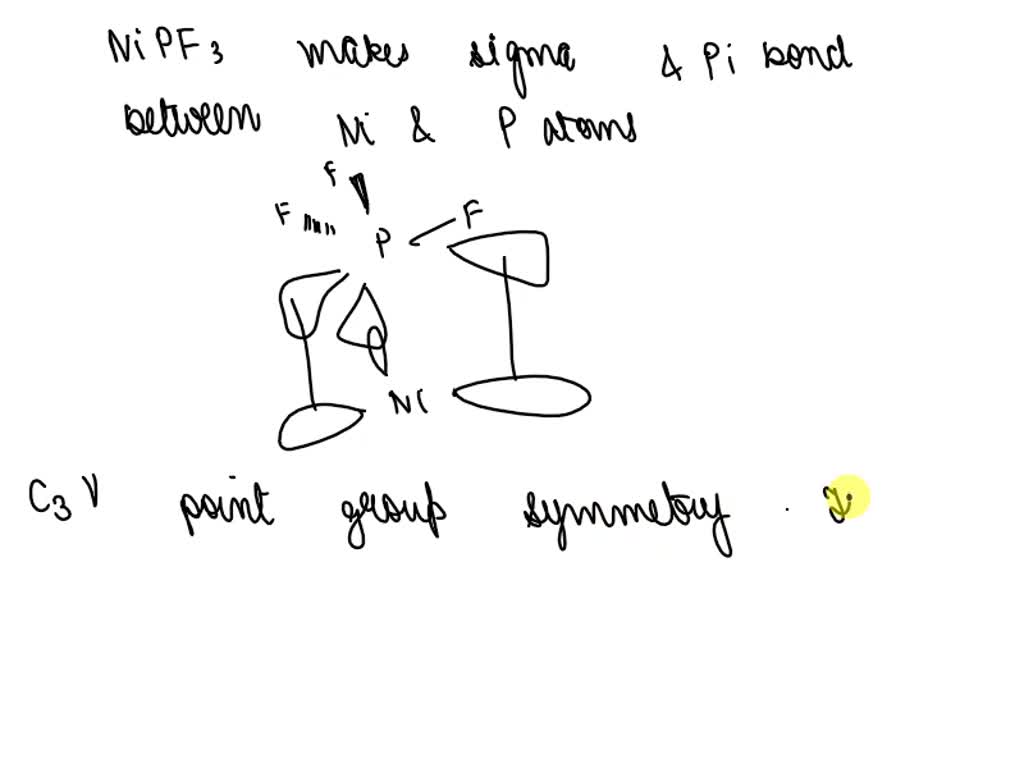 NiPF3 makes sigma & Pi bond
between Ni & P atoms
F
F P F
Ni
C3V point group symmetry .